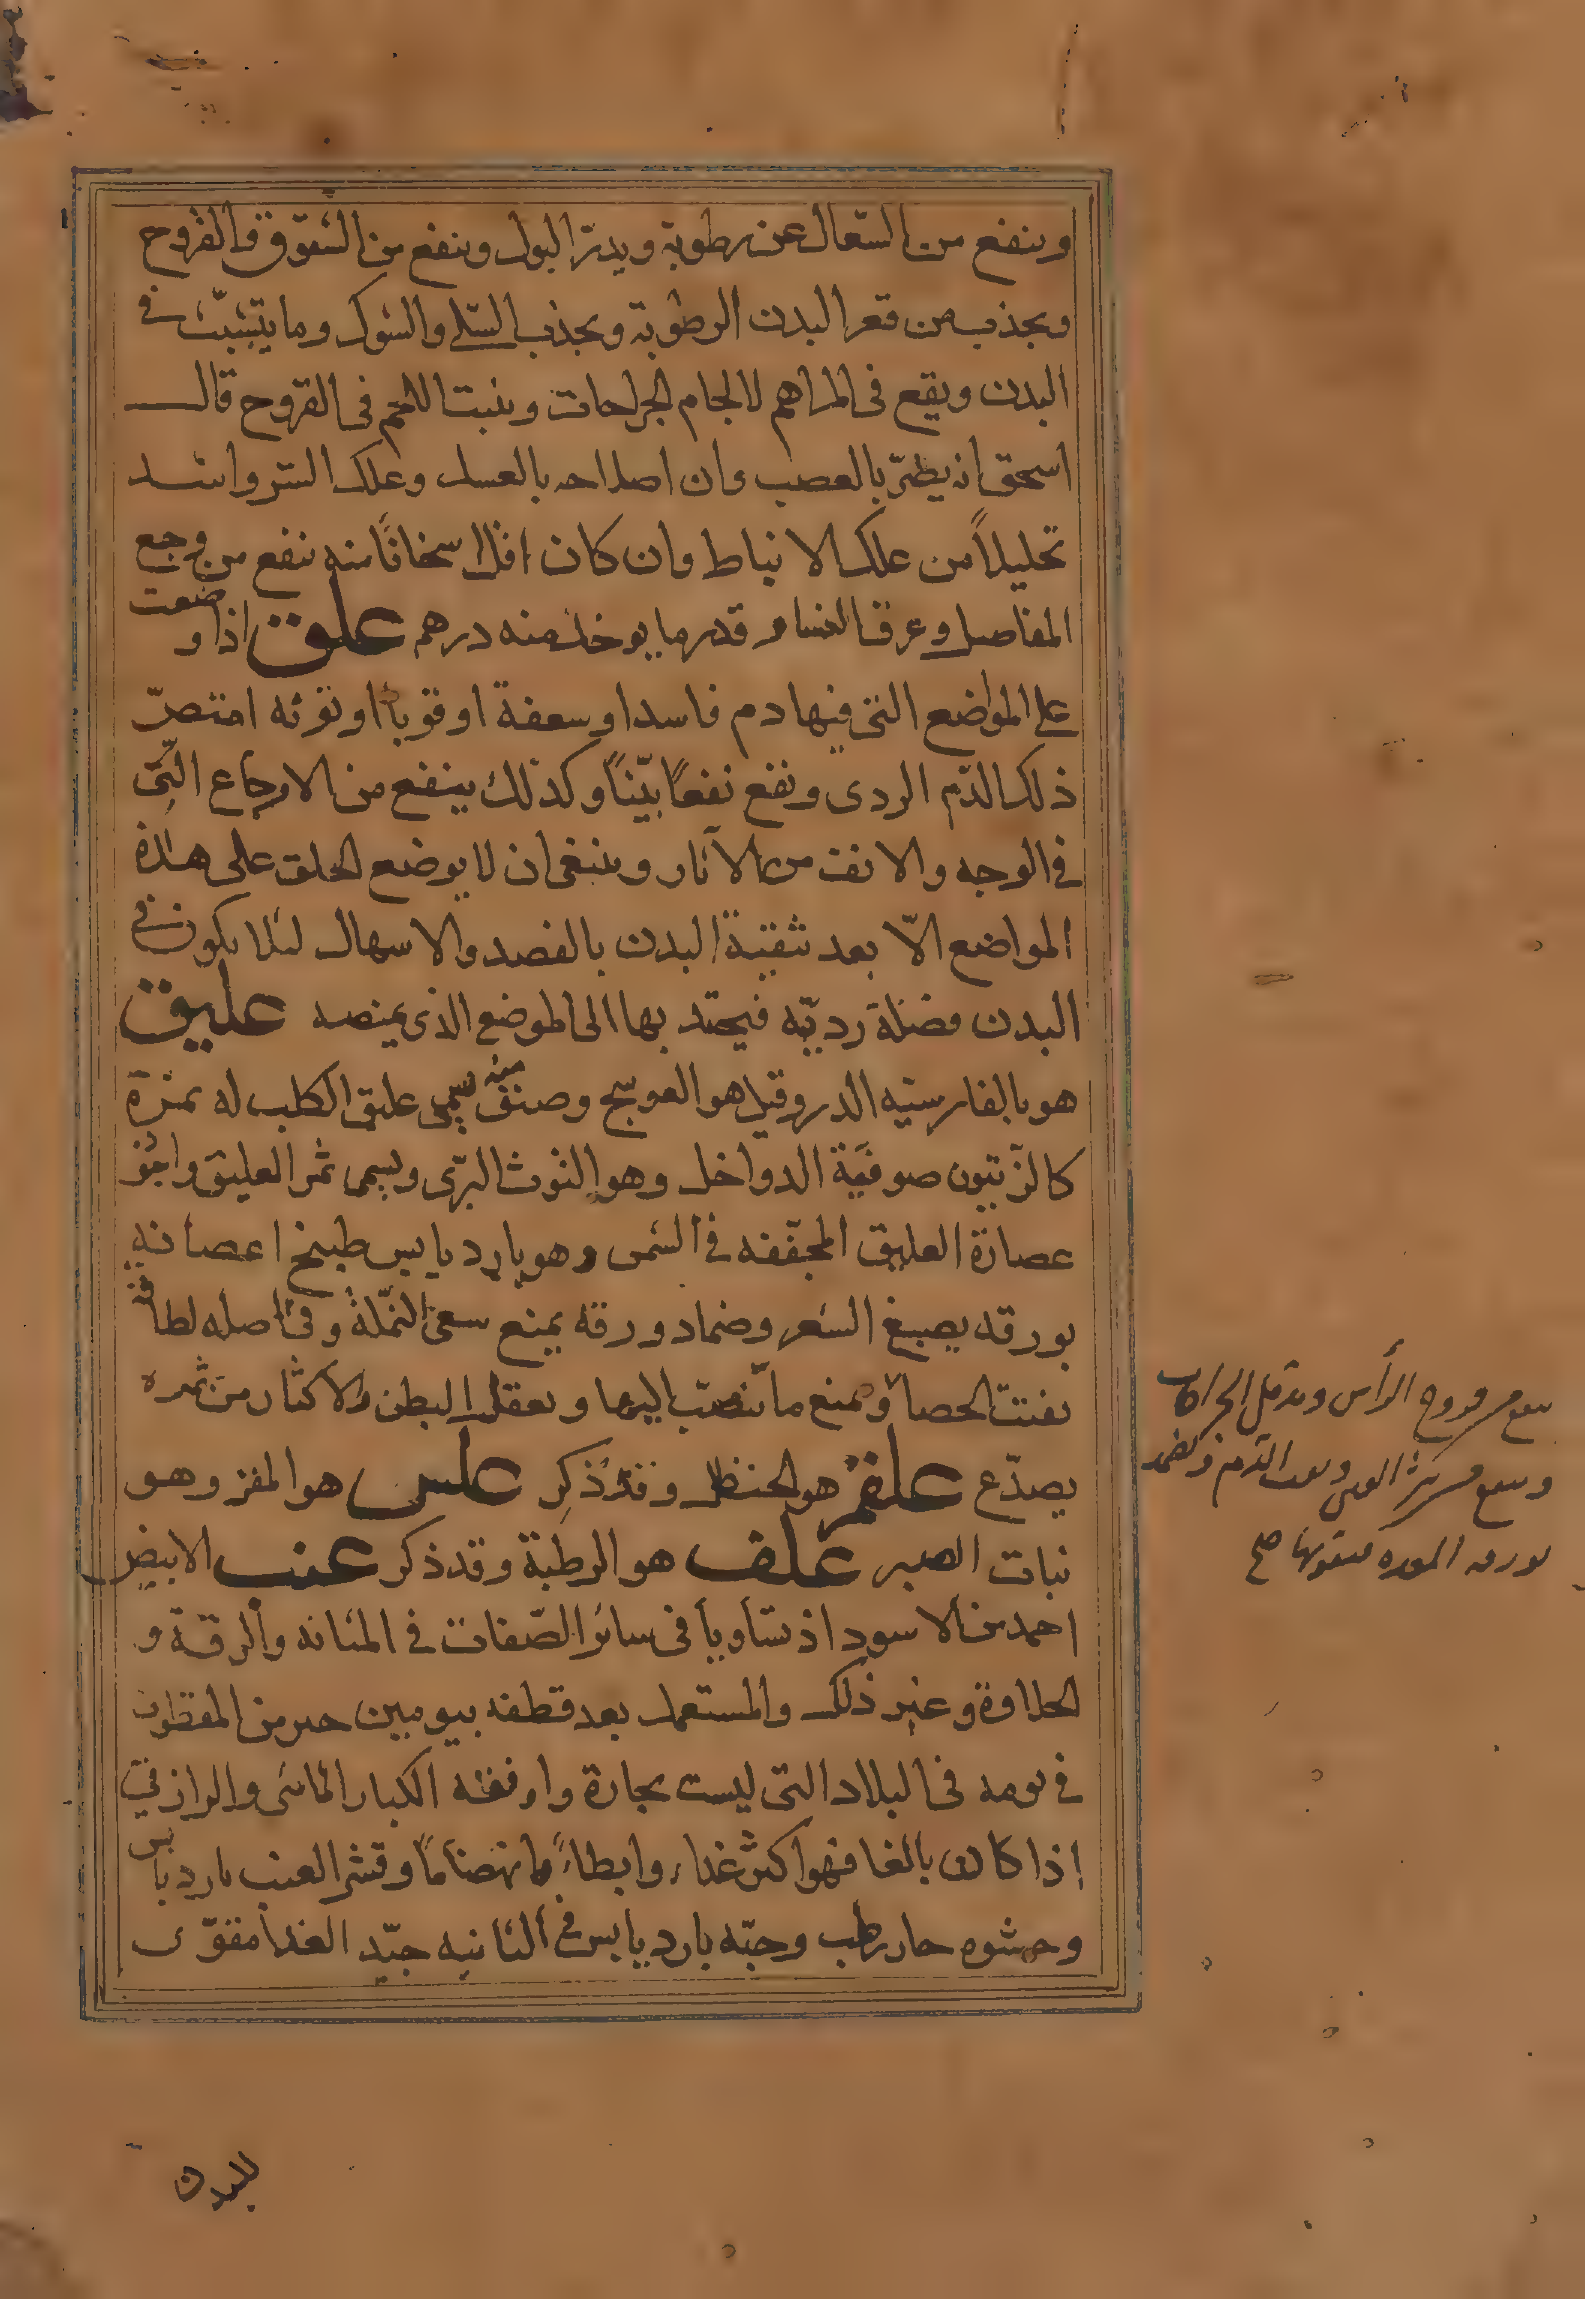 وينفع من السّعال عن رطوبة ويدرّ البول وينفع من الشقوق والقروح
ويجذب من قعر البدن الرطوبة ويجذب السّلى والشوك وما يتشبّث فى
البدن ويقع فى المراهم لالحام الجراحات وينبت اللحم فى القروح قال
اسحق انه يضرّ بالعصب وان اصلاحه بالعسل وعلك السرو اشد
تحليلاً من علك الانباط وان كان اقل اسخانًا منه ينفع من وجع
المفاصل وعرق النسا وقدر ما يوخذ منه درهم علق اذا وضعت
على المواضع التى فيها دم فاسد او سعفة او قوبا او توثه امتصّ
ذلك الدّم الردى ونفع نفعًا بيّنًا وكذلك ينفع من الاوجاع التّى
فى الوجه والانف من الآثار وينبغى ان لا يوضع العلق على هذه
المواضع الّا بعد تنقية البدن بالفصد والاسهال لئلا يكون فى
البدن فضلة رديّه فيجتذبها الى الموضع الذى يمتصه عليق
هو بالفارسيّه الدر وقيل هو العوسج وصنف منه يسمى عليق الكلب له ثمرة
كالزّيتون صوفيّة الدواخل وهو التوث البرّى ويسمى ثمر العليق واجوَد
عصارة العليق المجفّفه فى الشمس وهو بارد يابس طبيخ اغصانه
بورقه يصبغ الشعر وضماد ورقه يمنع سعى النّملة وفى اصله لطافة
يفتت الحصاة ويمنع ما ينصبّ اليها ويعقل البطن والاكثار من ثمره
يصدّع علقم هو الحنظل وقد ذكر علس هو المقر وهو
نبات الصبر علف هو الرطبة وقد ذكر عنب الابيض
احمد من الاسود اذ تساويا فى سائر الصّفات فى المثانه والرقة و
الحلاوة وغير ذلك والمستعمل بعد قطفه بيومين خير من المقطوف
فى يومه فى البلاد التى ليست بحارة واوفقه الكبار الماشى والرازقى
اذا كان بالغا فهو اكثر غذاء وابطاءً وانهضامًا وقشر العنب بارد يابس
وحشوه حار رطب وحبّه بارد يابس فى الثانيه جيّد الغذا مقوّى
ينفع من قروح الرأس ويدمل الجراحات
وينفع من
بورقه المعدة فيقويها صح
للبدن